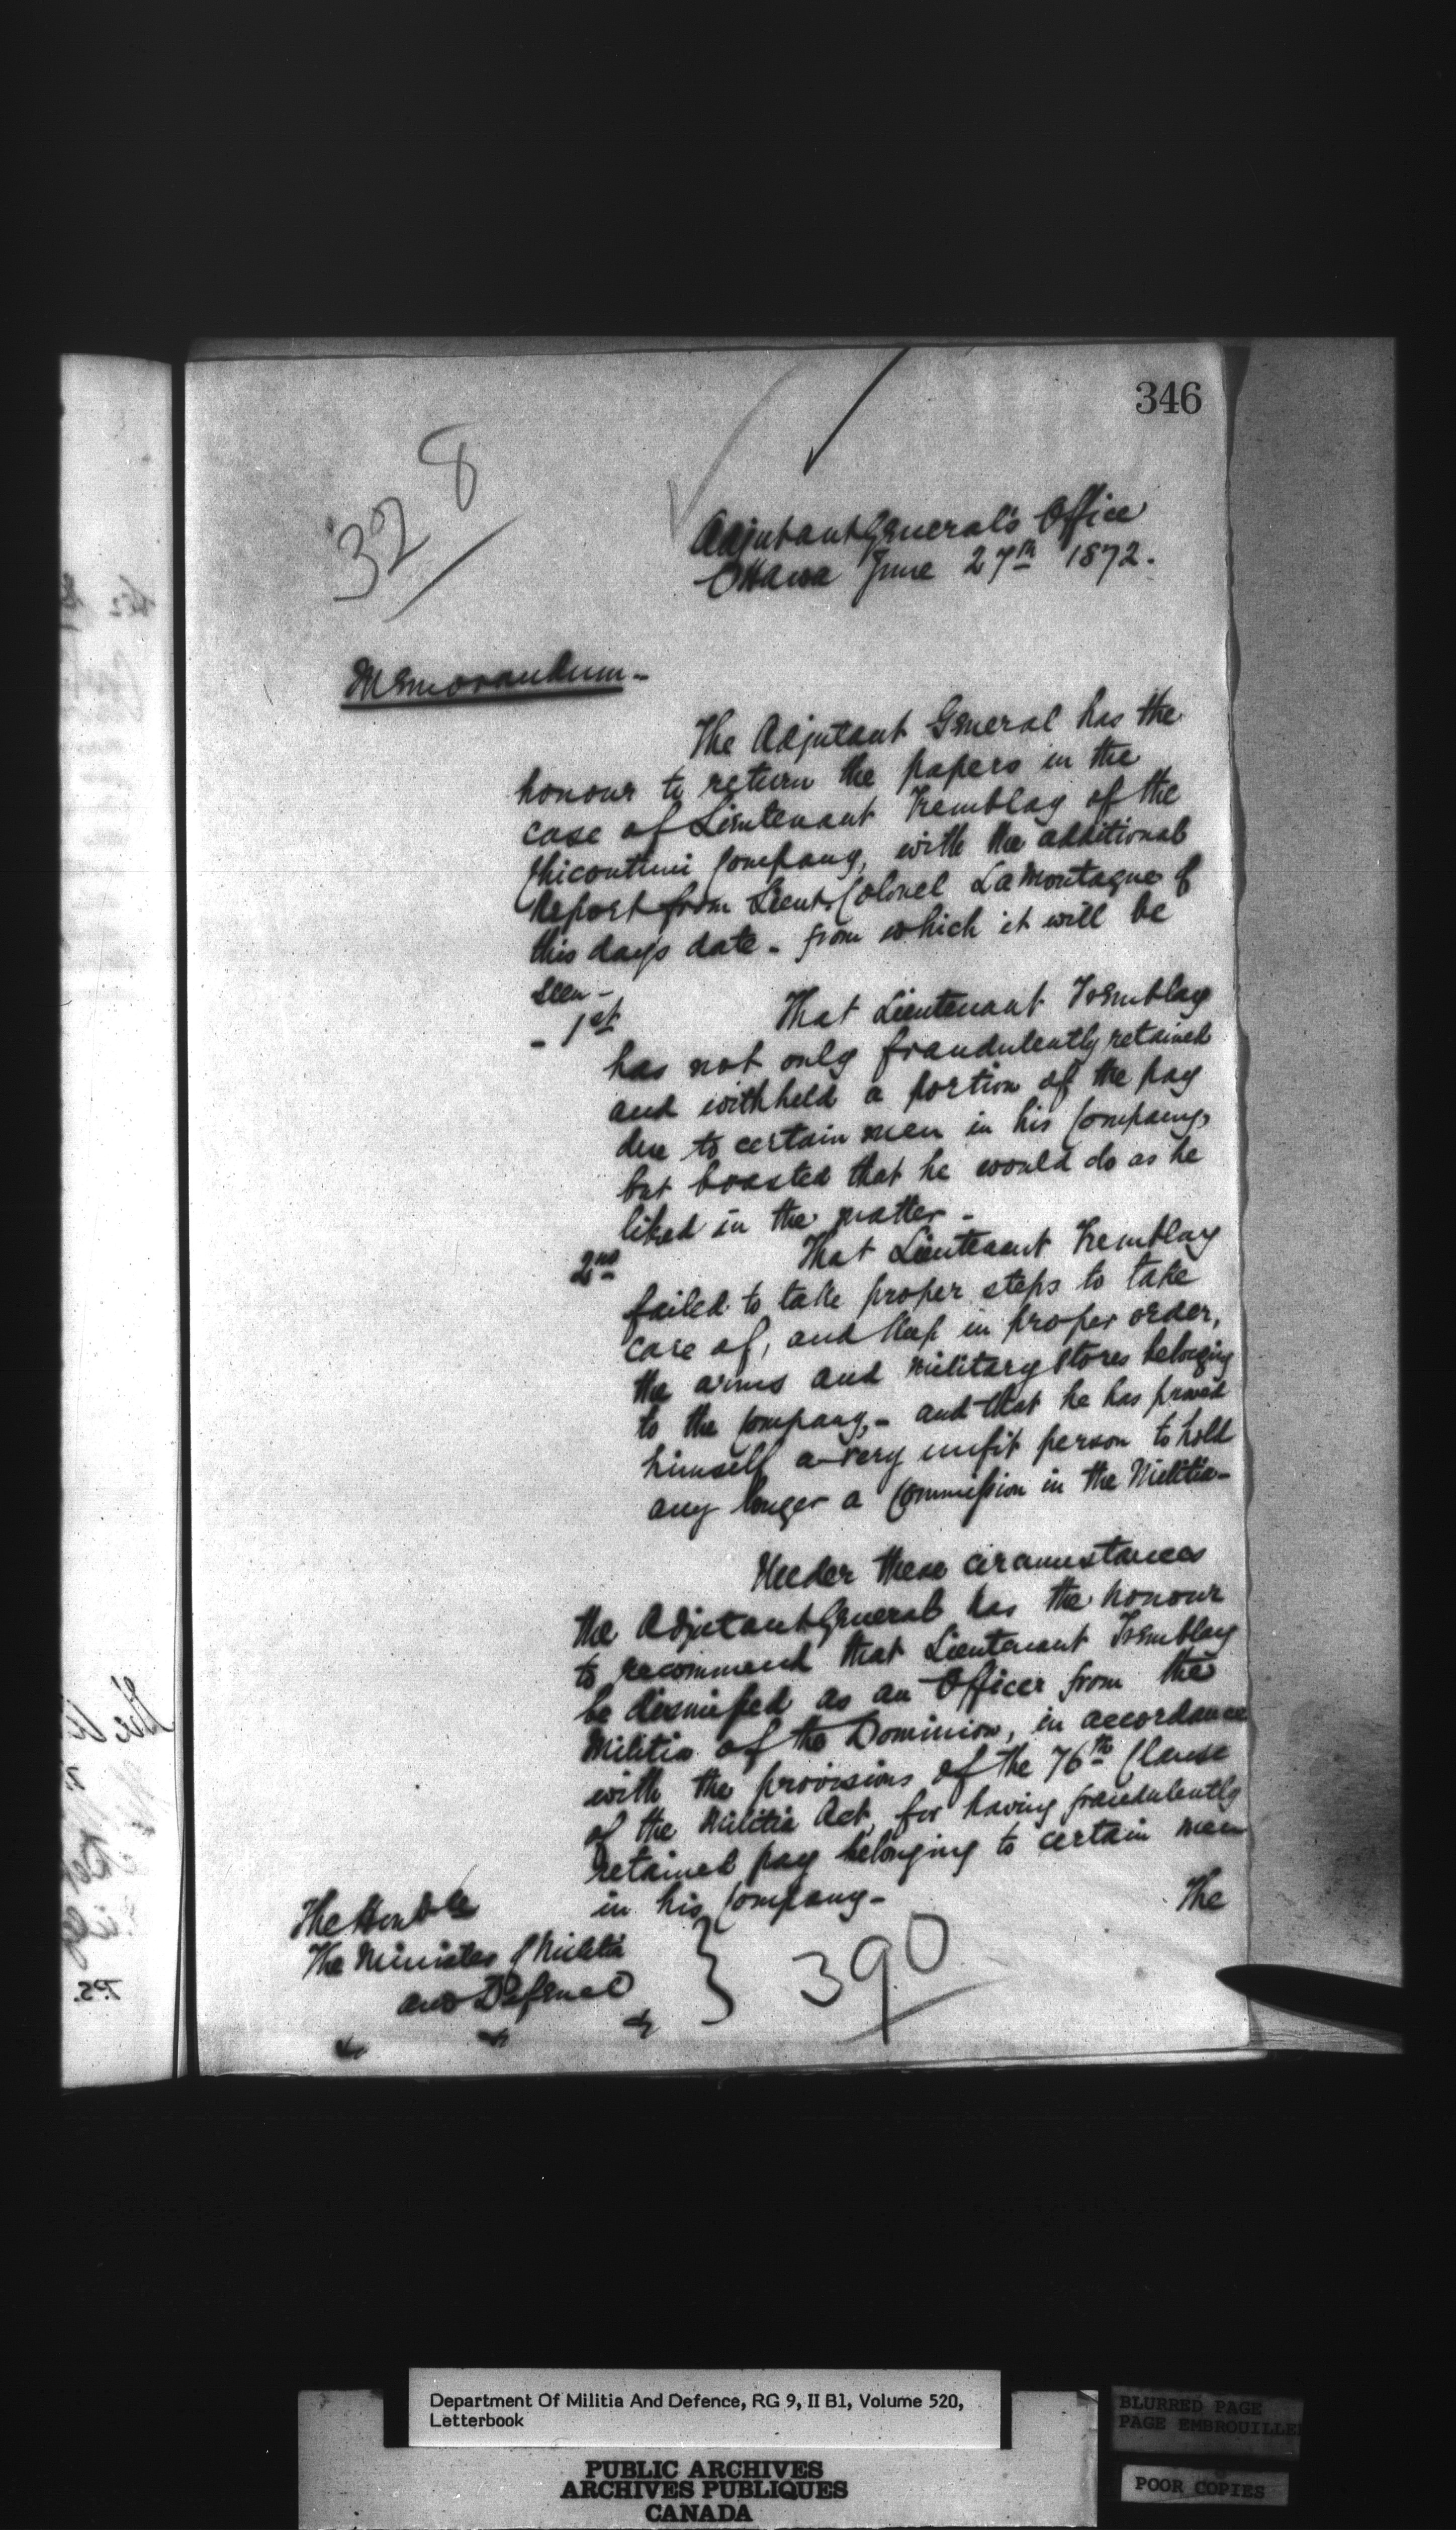 346
328
Adjutant General's Office
Ottawa June 27th 1872.
Memorandum -
The Adjutant General has the
honour to return the papers in the
case of Lieutenant Tremblay of the
Chicoutimi Company, with the additional
Report from Lieut. Colonel LaMontagne of
this days date - from which it will be
seen -
- 1st That Lieutenant Tremblay
has not only fraudulently retained
and withheld a portion of the pay
due to certain men in his Company,
but boasted that he would do as he
liked in the matter -
2nd That Lieutenant Tremblay
failed to take proper steps to take
care of, and keep in proper order,
the arms and military stores belonging
to the Company, - and that he has proved
himself a very unfit person to hold
any longer a Commission in the Militia -
Under these circumstances
the Adjutant General has the honour
to recommend that Lieutenant Tremblay
be dismissed as an Officer from the
Militia of the Dominion, in accordance
with the provisions of the 76th Clause
of the Militia Act, for having fraudulently
retained pay belonging to certain men
in his Company -
The
The Honble
The Minister of Militia
and Defence
390
Department Of Militia And Defence, RG 9, II B1, Volume 520,
Letterbook
PUBLIC ARCHIVES
ARCHIVES PUBLIQUES
CANADA
BLURRED PAGE
PAGE EMBROUILLE
POOR COPIES